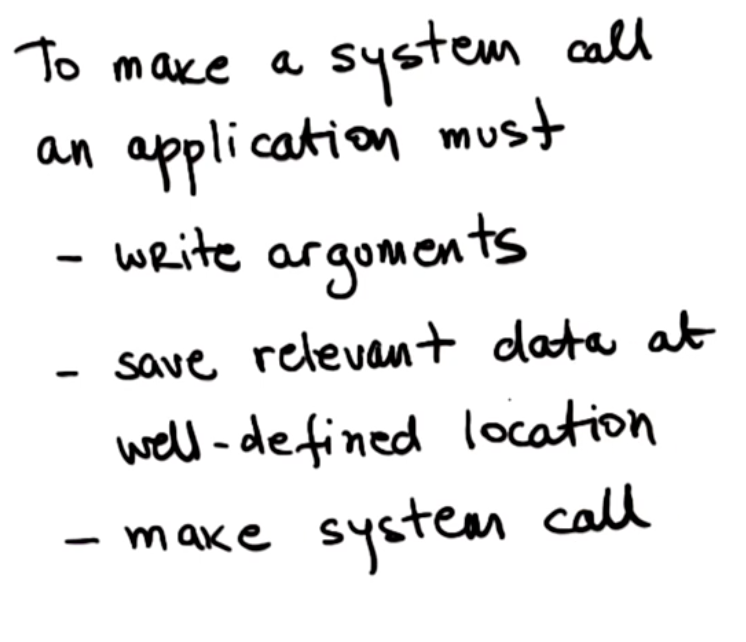 To make a system call
an application must
- write arguments
- save relevant data at
well-defined location
- make system call